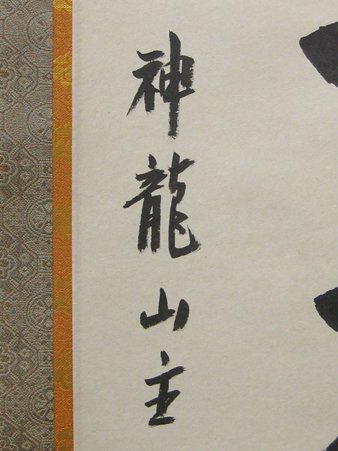 神龍山主